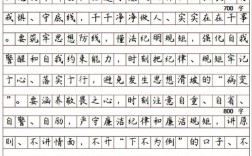 700 字
我惧、守底线，干干净净做人、实实在在干事
。要筑牢思想防线，懂法纪明规矩，强化自我
警醒和自我约束能力，时刻把纪律、规矩牢记
于心、落实于行，避免发生思想滑坡的“病变
”。要涵养敬畏之心，时刻注意自重、自省、
800 字
自警、自励，严守廉洁纪律和廉洁规矩，讲原
则、不讲情面，不开“下不为例”的口子、不